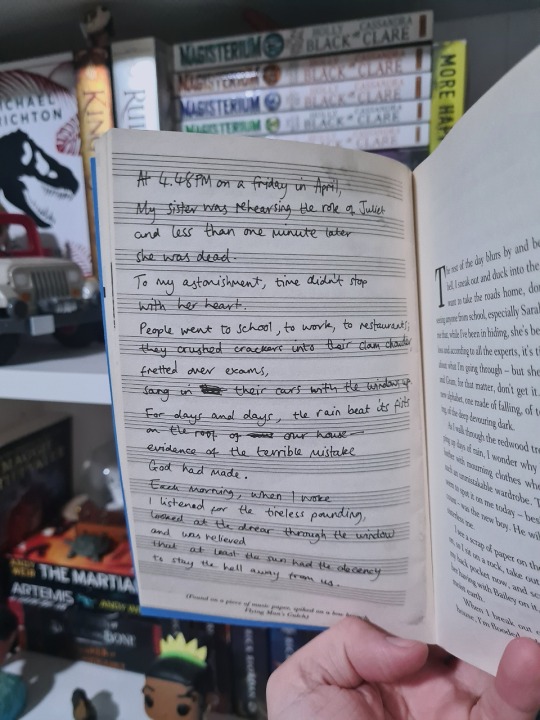 MICHAEL
CRICHTON
KING
MAGISTERIUM
HOLLY BLACK
CASSANDRA CLARE
MAGISTERIUM
BLACK CLARE
MAGISTERIUM
BLACK CLARE
MAGISTERIUM
BLACK CLARE
MORE HAP
At 4.48PM on a friday in April,
My sister was rehearsing the role of Juliet
and less than one minute later
she was dead.
To my astonishment, time didn't stop
with her heart.
People went to school, to work, to restaurants;
they crushed crackers into their clam chowder
fretted over exams,
sang in their cars with the windows up
For days and days, the rain beat its fists
on the roof of our house
evidence of the terrible mistake
God had made.
Each morning, when I woke
I listened for the tireless pounding,
looked at the drear through the window
and was relieved
that at least the sun had the decency
to stay the hell away from us.
(Found on a piece of music paper, spiked on a low
Flying Man's Gulch)
The rest of the day blurs by and be
bell, I sneak out and duck into the
want to take the roads home, don
seeing anyone from school, especially Sarah
me that, while I've been in hiding, she's be
loss and according to all the experts, it's t
about what I'm going through – but she
and Gran, for that matter, don't get it.
new alphabet, one made of falling, of te
ng, of the deep devouring dark.
As I walk through the redwood tre
ping up days of rain, I wonder why
other with mourning clothes whe
such an unmistakable wardrobe. T
seem to spot it on me today – besid
was the new boy. He will
I see a scrap of paper on the
When I break out
THE MARTIAN
ARTEMIS
ANDY